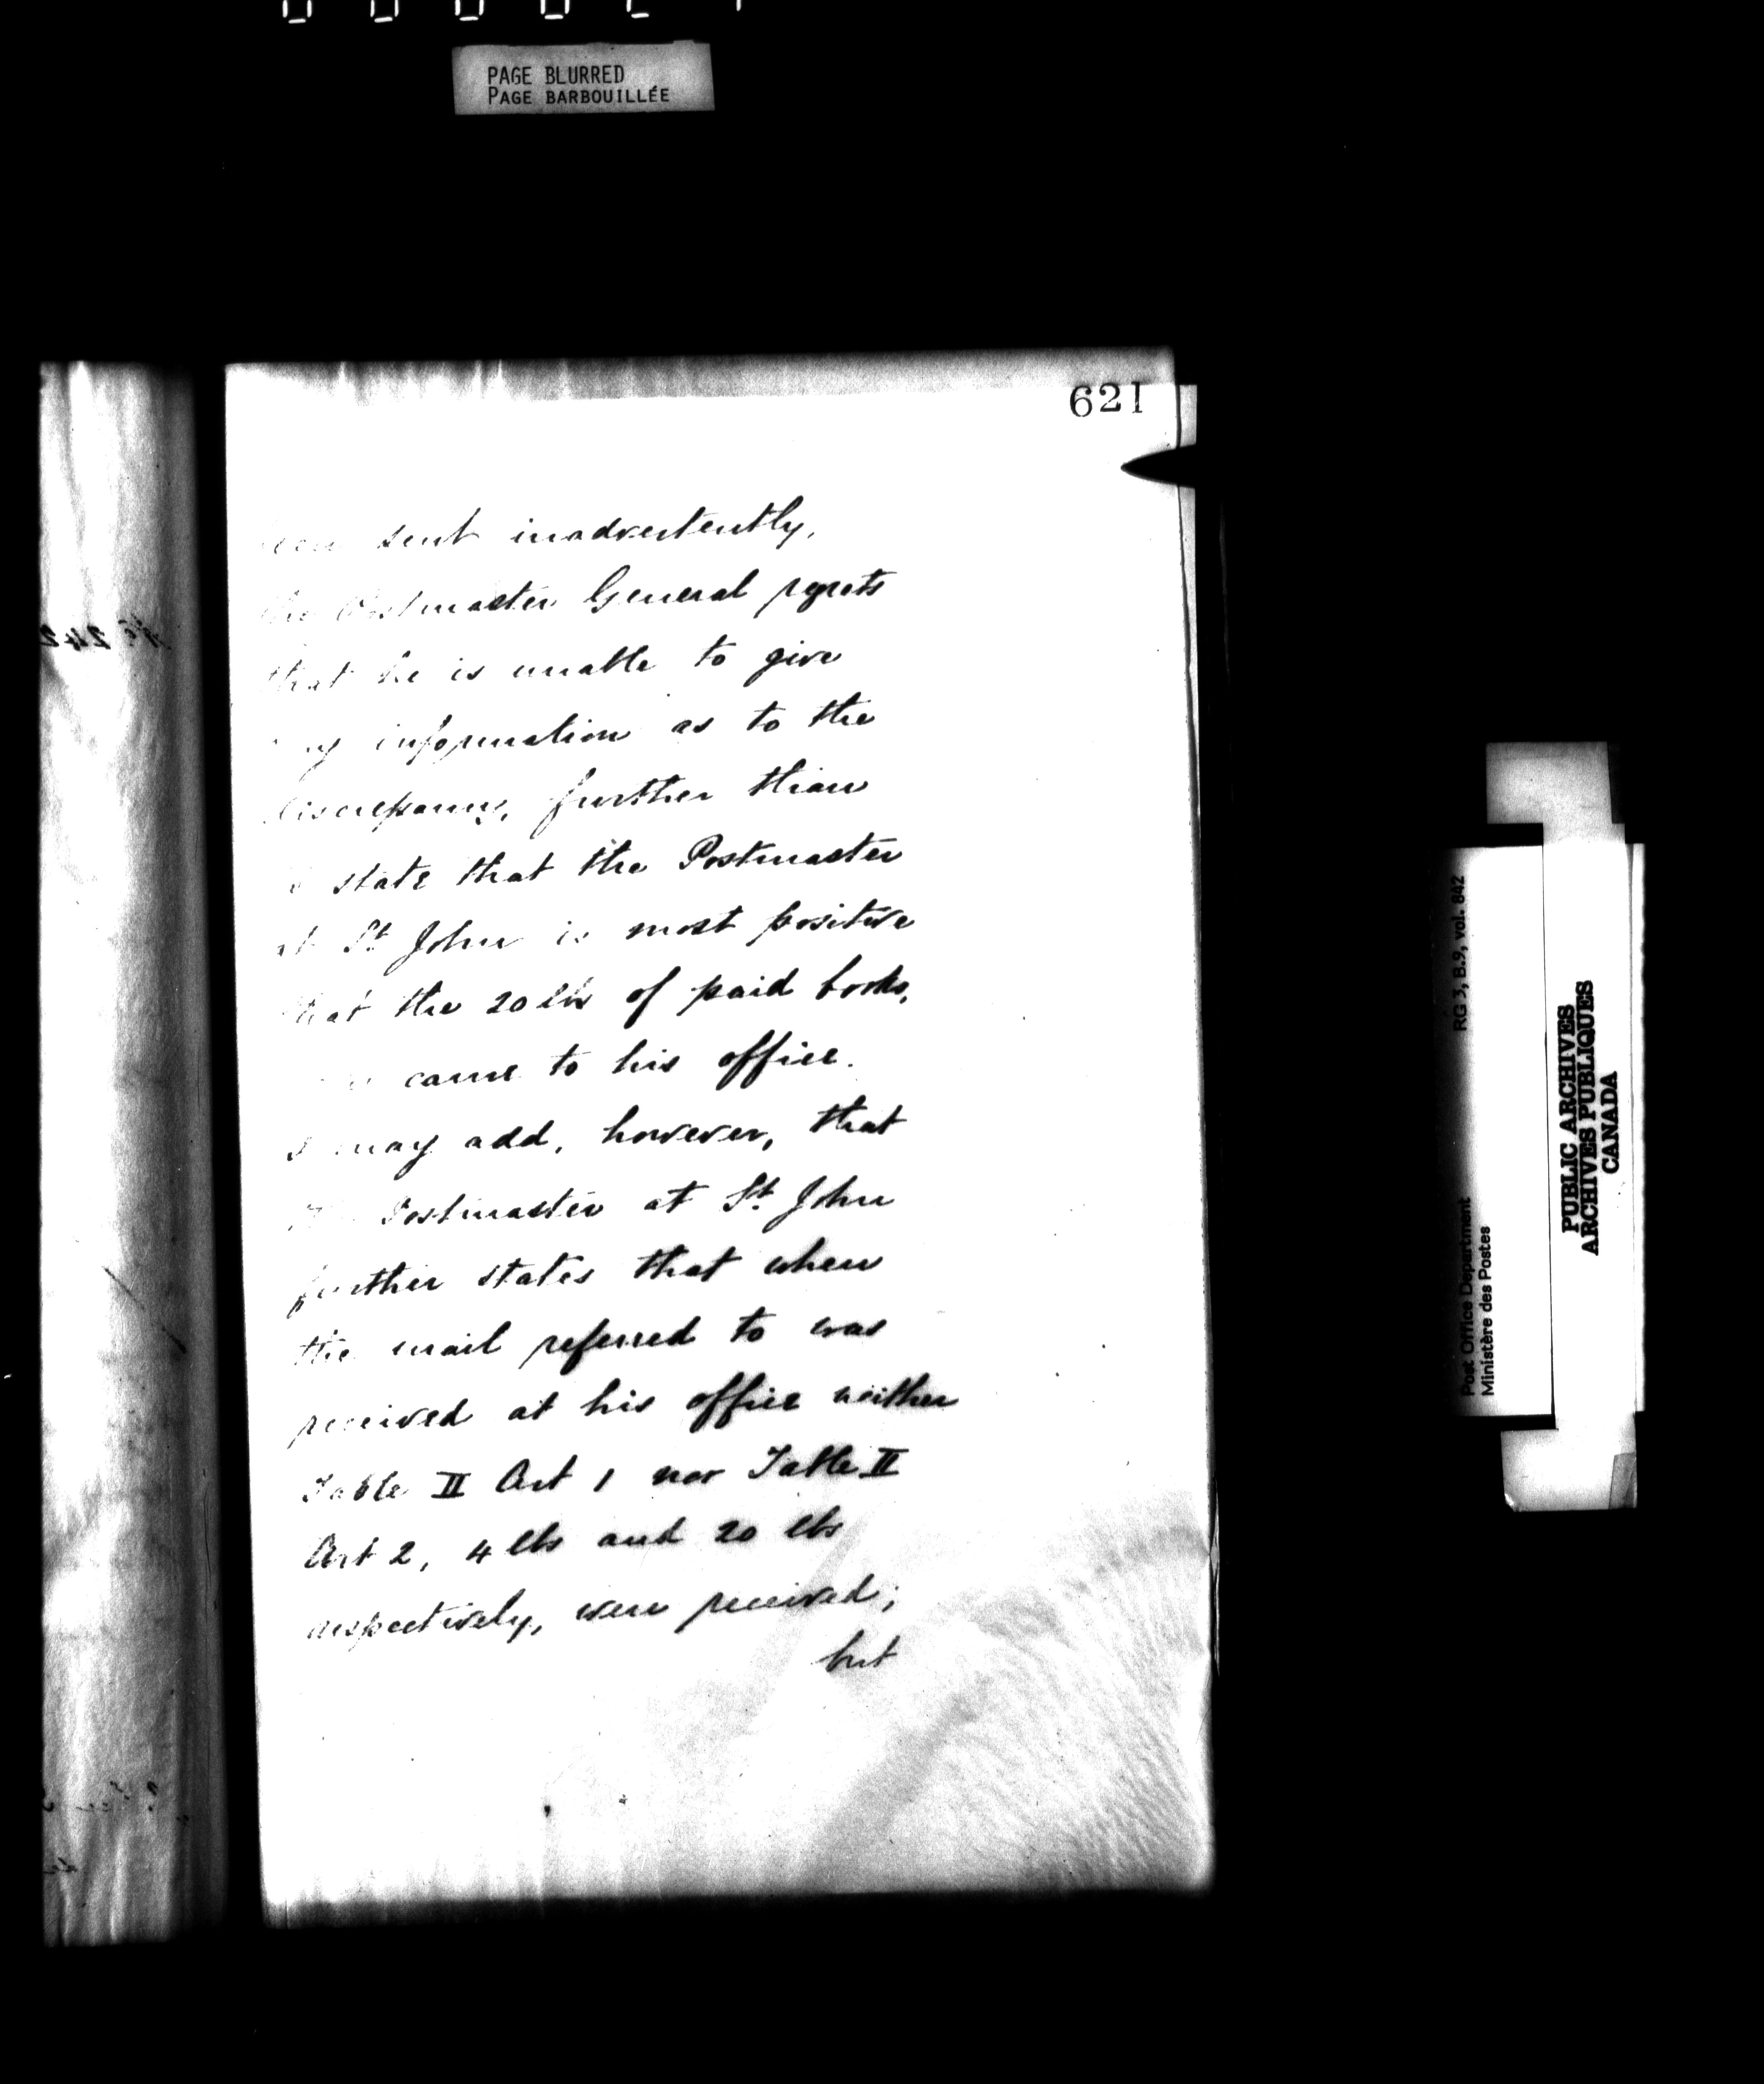 PAGE BLURRED
PAGE BARBOUILLÉE
621
sent inadvertently,
the Postmaster General regrets
that he is unable to give
information as to the
discrepancy, further than
state that the Postmaster
at St John is most positive
that the 20 lbs of paid books,
came to his office.
I may add, however, that
Postmaster at St. John
further states that when
the mail referred to was
received at his office neither
Table II Art 1 nor Table II
Art 2, 4 lbs and 20 lbs
respectively, were received;
but
RG 3, B.9, vol. 842
Post Office Department
Ministère des Postes
PUBLIC ARCHIVES
ARCHIVES PUBLIQUES
CANADA